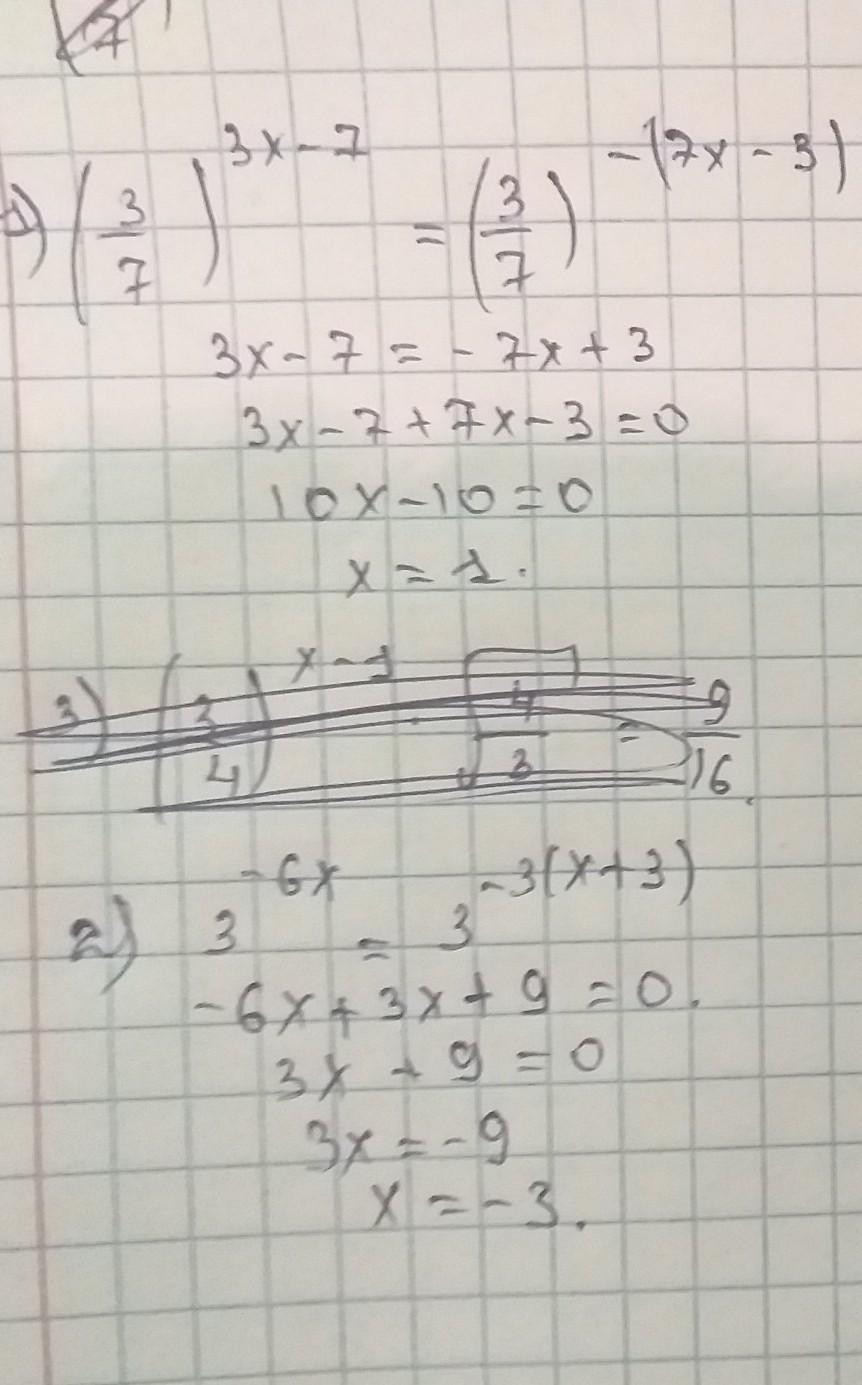 1) (3/7)^(3x-7) = (3/7)^(-(7x-3))
3x - 7 = -7x + 3
3x - 7 + 7x - 3 = 0
10x - 10 = 0
x = 1.
3) (3/4)^(x-1) · √(4/3) = 9/16
2) 3^(-6x) = 3^(-3(x+3))
-6x + 3x + 9 = 0.
3x + 9 = 0
3x = -9
x = -3.